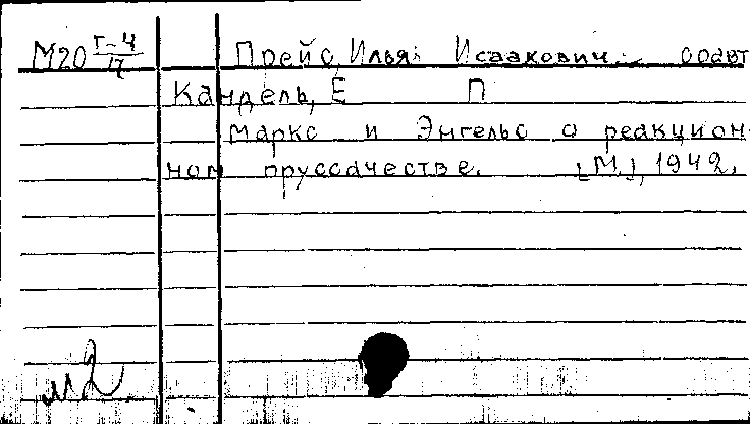 М20 Г-4/17 Прейс, Илья Исаакович. соавт
Кандель, Е П
Маркс и Энгельс о реакцион-
ном пруссачестве. [М.], 1942.
м2